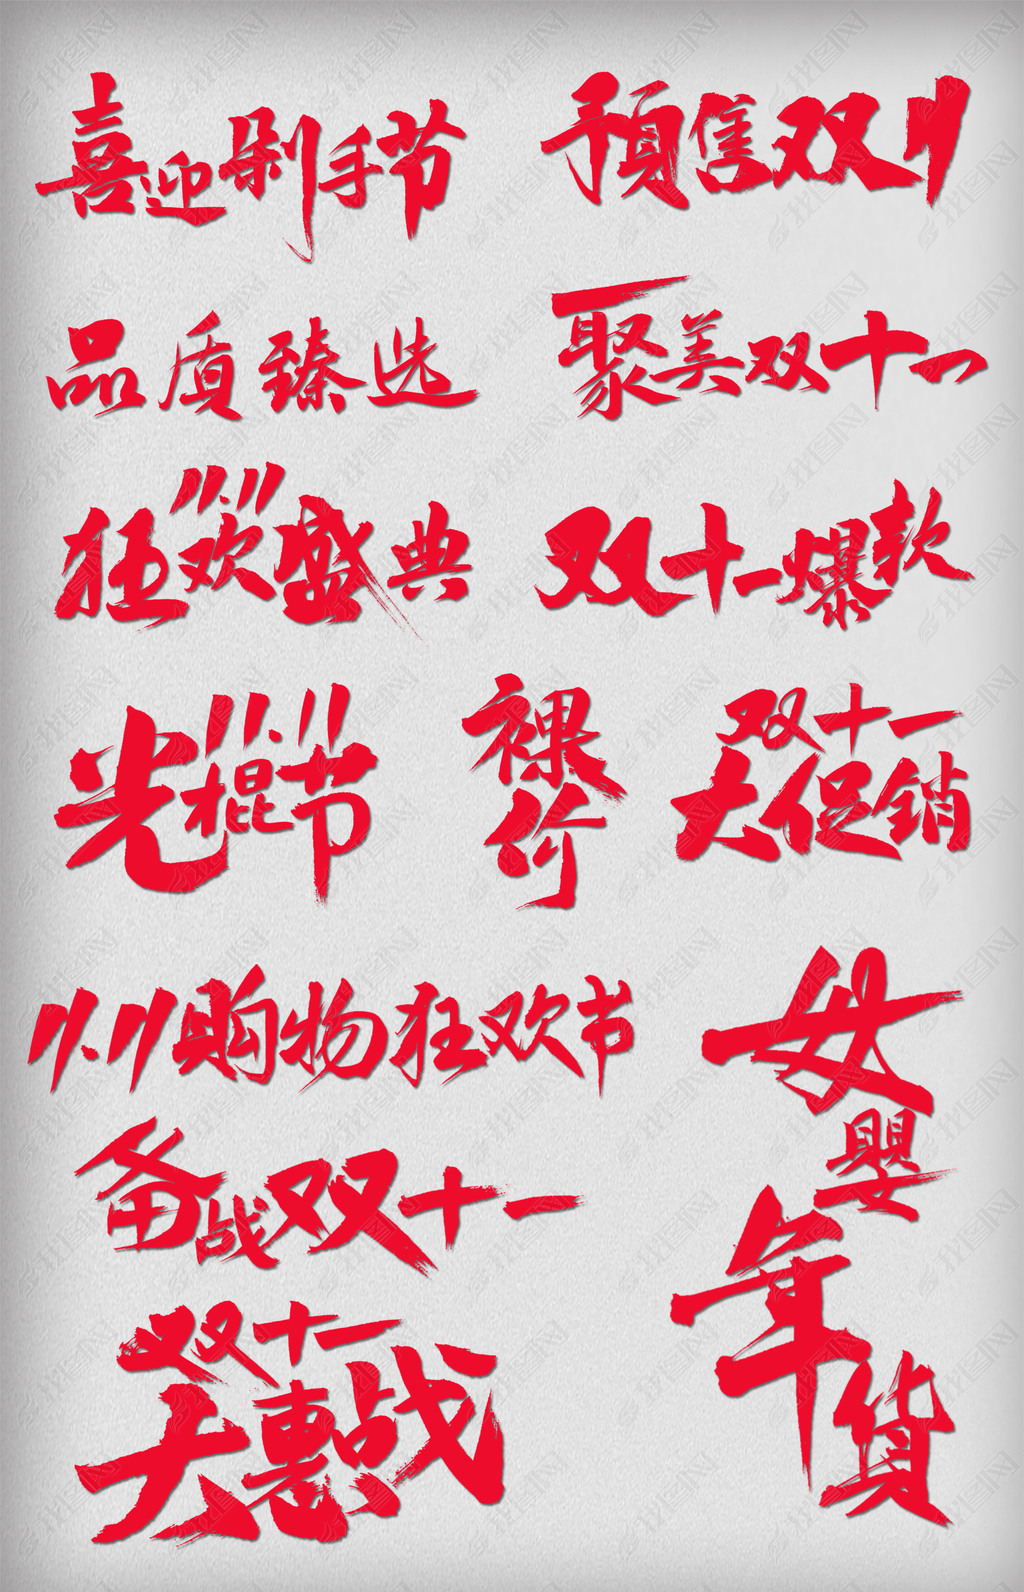 喜迎剁手节
预售双11
品质臻选
聚美双十一
11.11
狂欢盛典
双十一爆款
11.11
光棍节
裸价
双十一
大促销
11.11购物狂欢节
母婴年货
备战双十一
双十一
大惠战